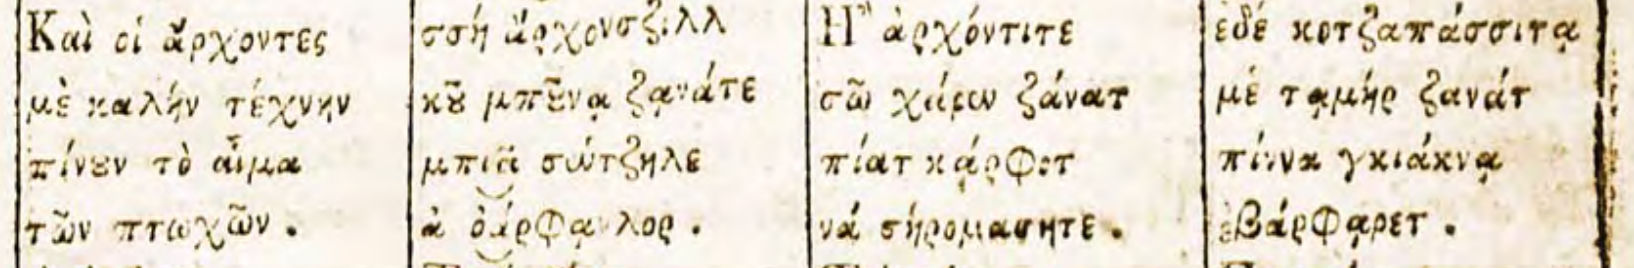 Καὶ οἱ ἄρχοντες
μὲ καλὴν τέχνην
πίνȣν τὸ αἷμα
τῶν πτωχῶν .
σσὴ ἄρχονσζιλλ
κȣ̃ μπȣ̃να̣ ζα̣νάτε
μπιᾶ σώτζηλε
ἀ ὀάρφα̣νλορ .
Ἡ ἀρχόντιτε
σῶ χάρων ζάνατ
πίατ κά̣ρφοτ
νά σήρομασητε .
ἐδέ κοτζαπάσσιτα̣
μέ τα̣μήρ ζανάτ
πίννκ γκιάκνα̣
ἐβάρφα̣ρετ .